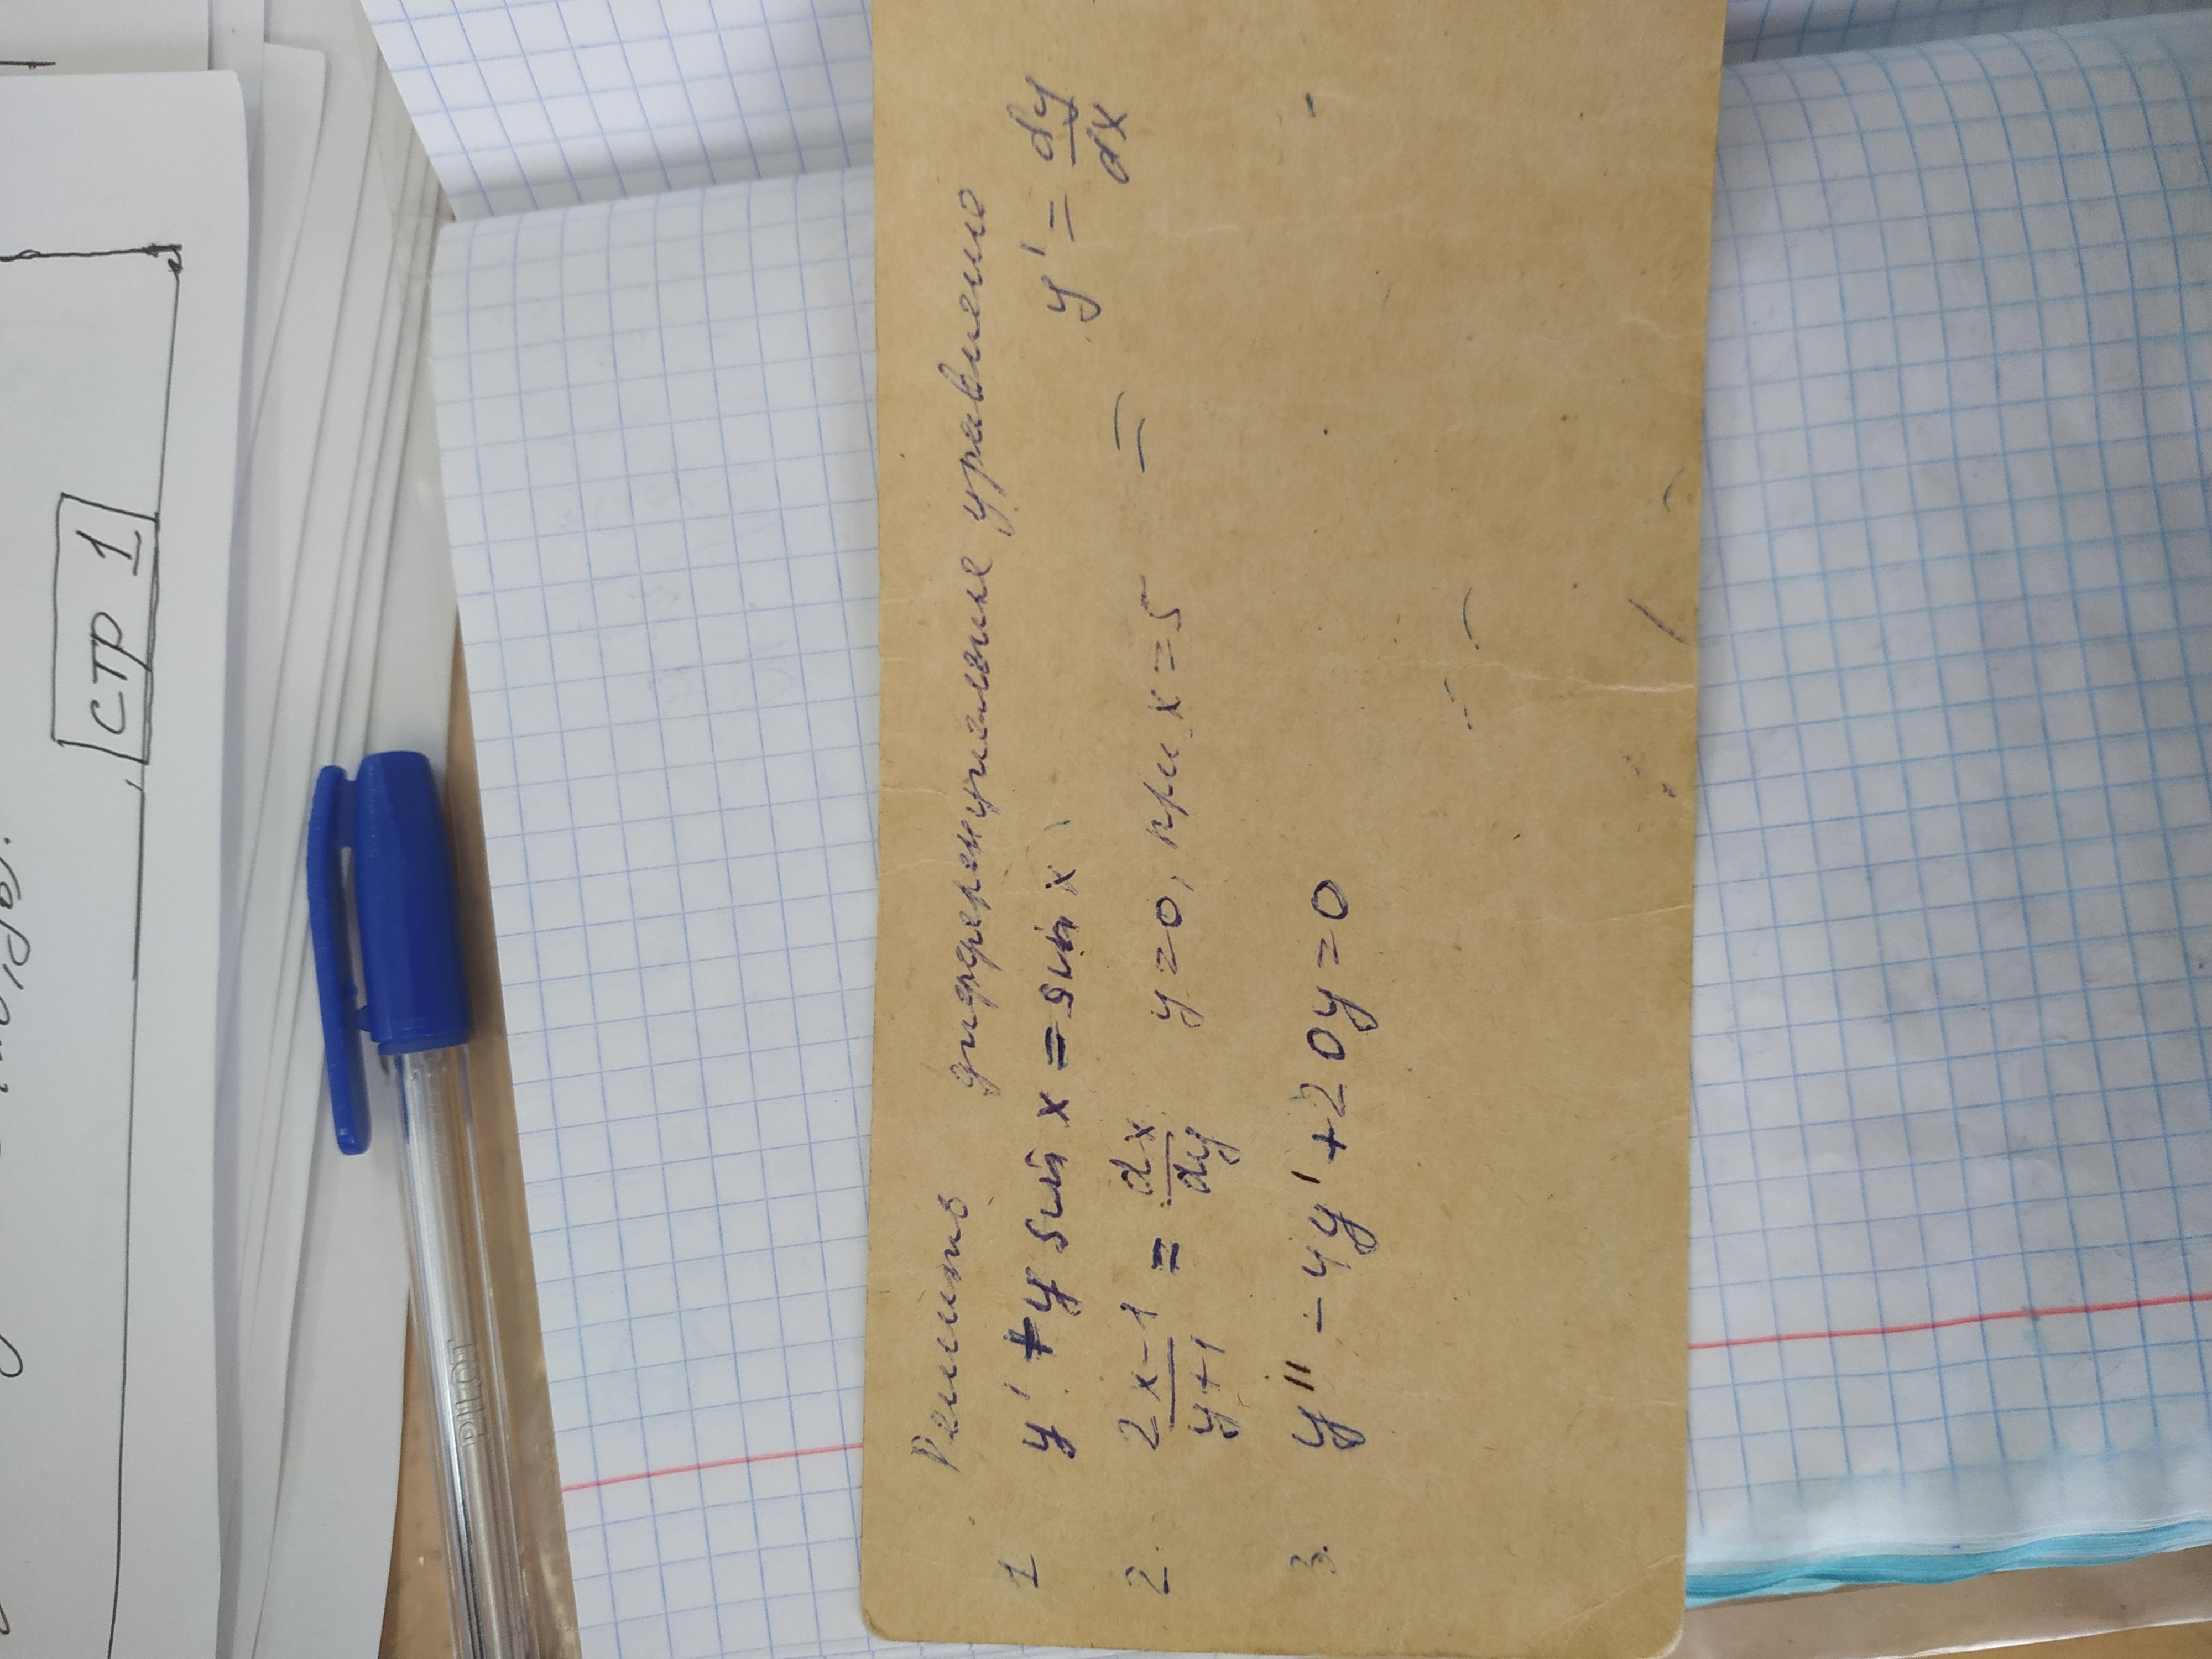 СТР 1
PILOT
Решить дифференциальные уравнение
1 y' + y sin x = sin x y' = dy/dx
2. 2x-1/y+1 = dx/dy y=0, при x=5 =
3. y'' - 4y' + 20y = 0